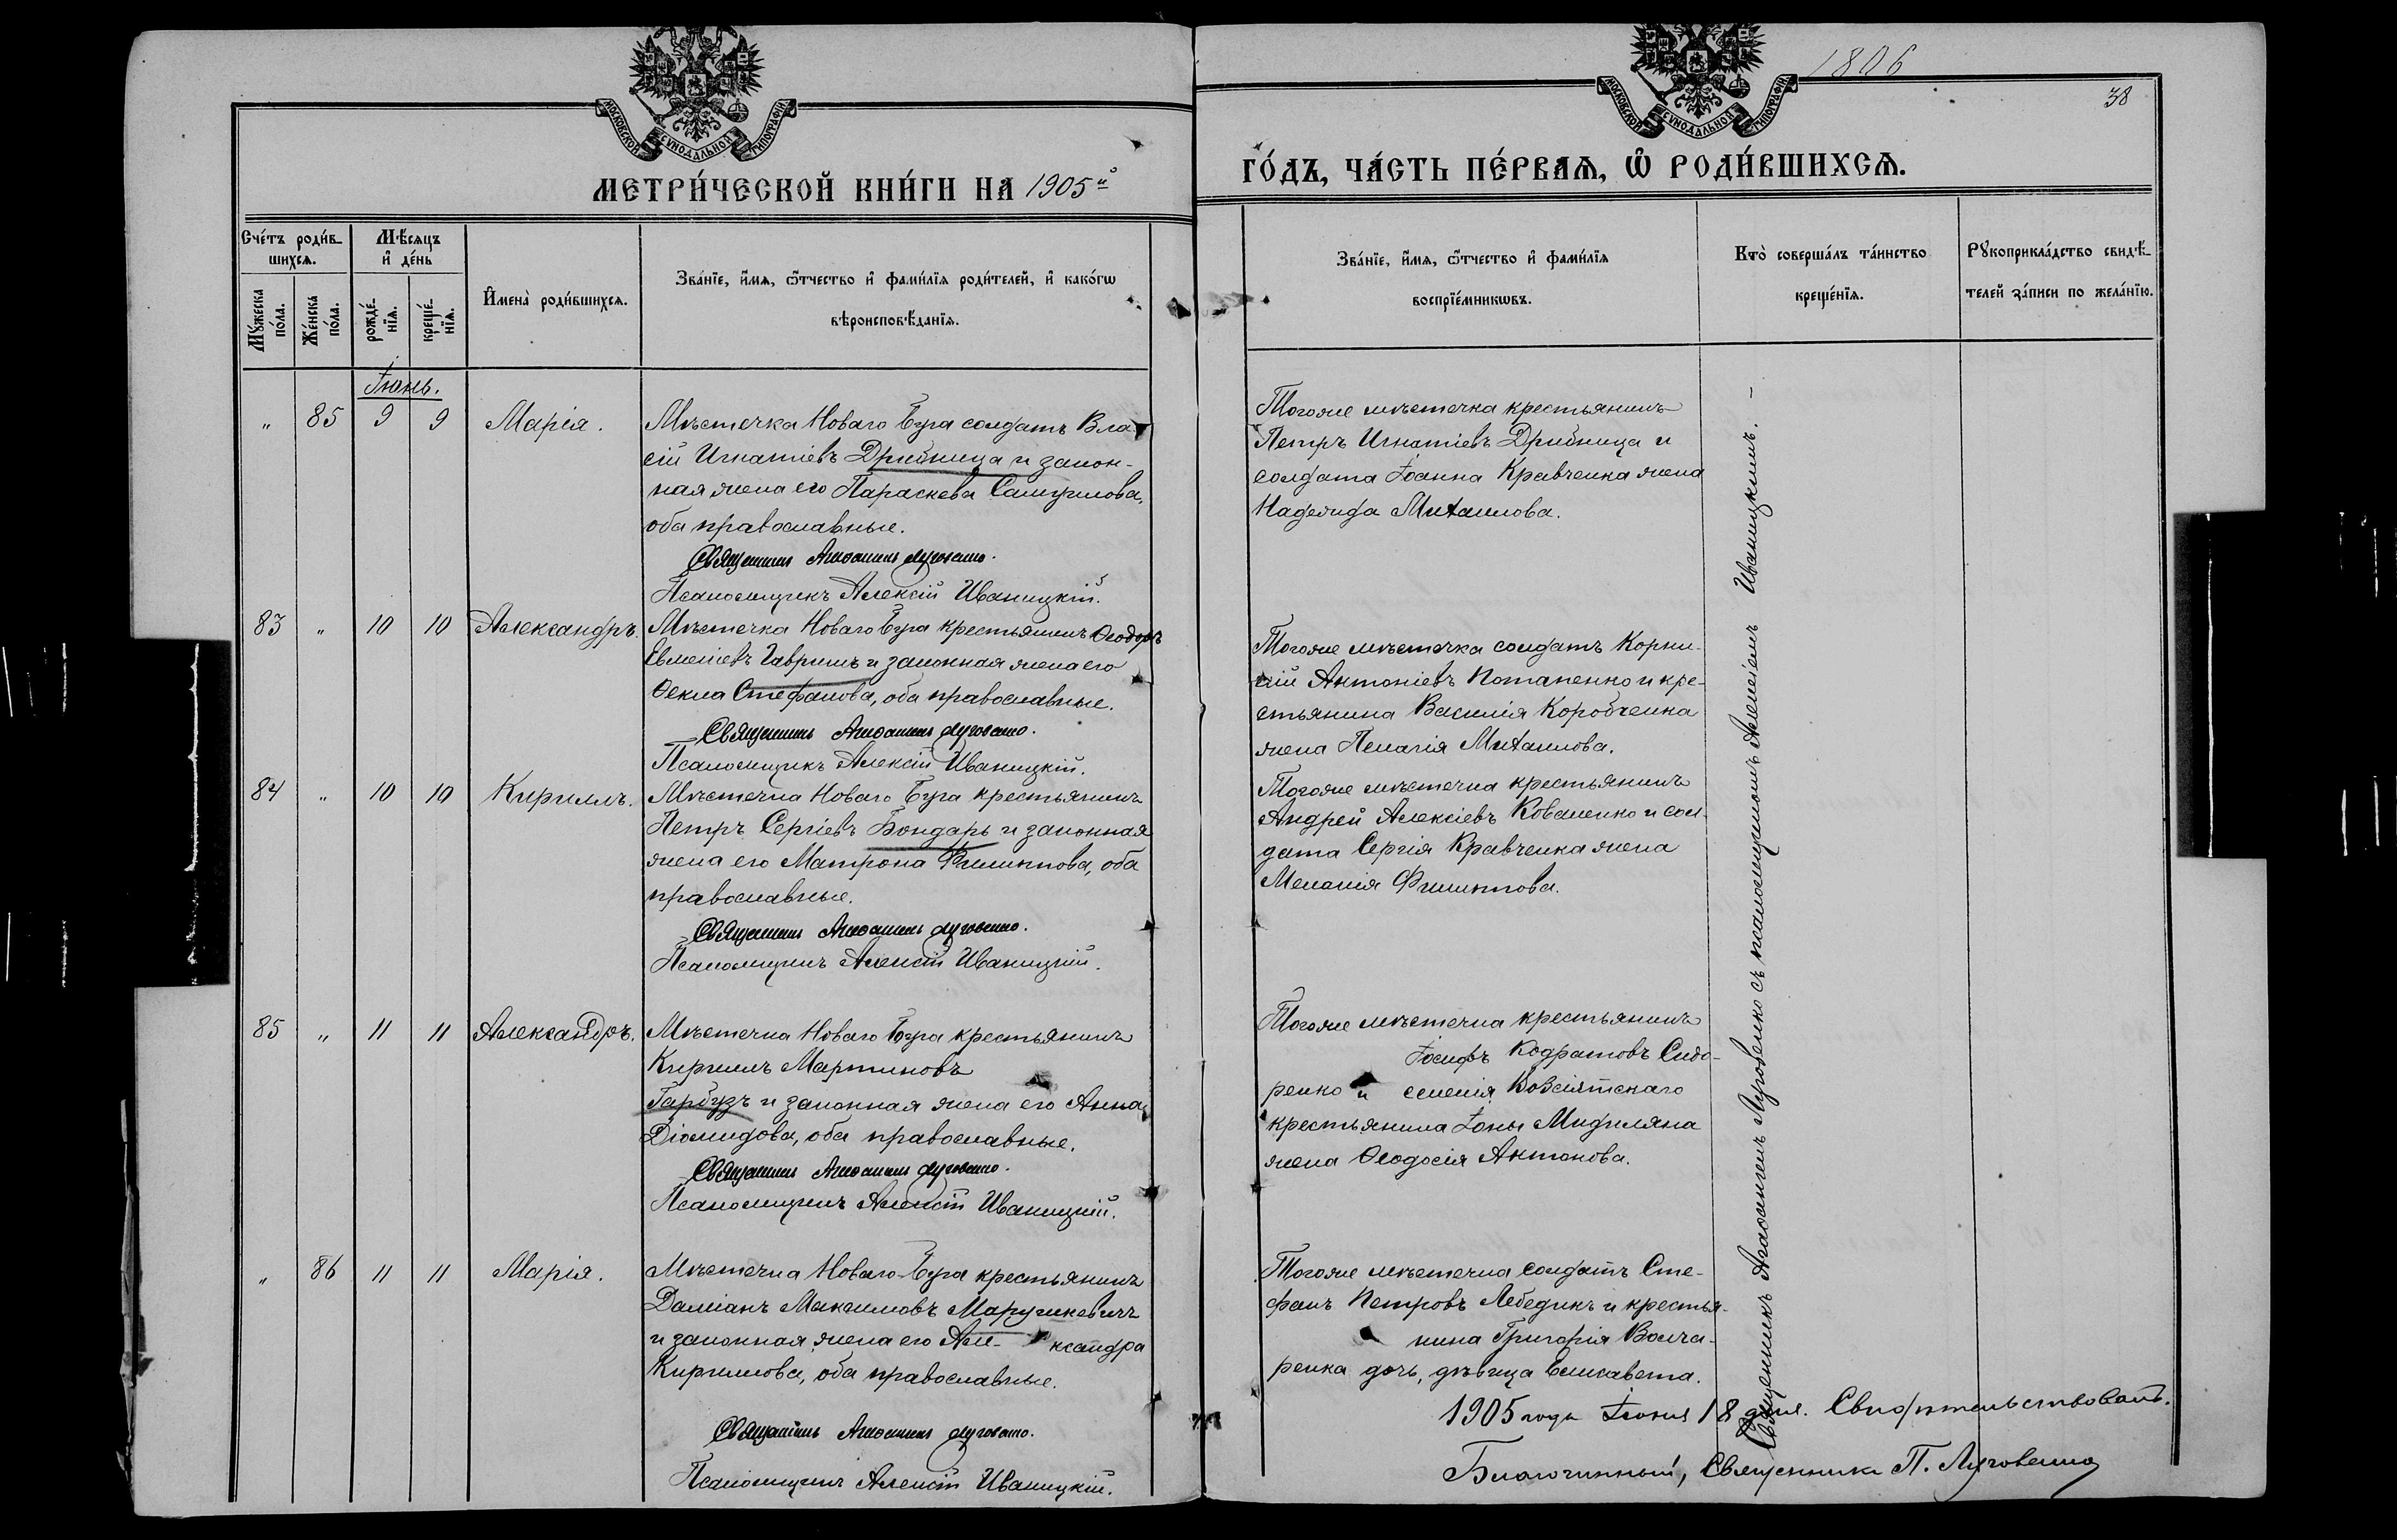 1806
38
МОСКОВСКОЙ СѴНОДАЛЬНОЙ ТИПОГРАФІИ
МОСКОВСКОЙ СѴНОДАЛЬНОЙ ТИПОГРАФІИ
МЕТРИ́ЧЕСКОЙ КНИ́ГИ НА 1905й
ГО́ДЪ, ЧА́СТЬ ПЕ́РВАѦ, Ѽ РОДИ́ВШИХСѦ.
Сче́тъ роди́в-
шихсѧ.
Мꙋ́жеска
по́ла.
Же́нска
по́ла.
Мѣ́сѧцъ
и҆ де́нь
рожде́-
нїѧ.
креще́-
нїѧ.
И҆мена̀ роди́вшихсѧ.
Зва́нїе, и҆́мѧ, ѻ҆́тчество и҆ фами́лїѧ роди́телей, и҆ како́гѡ
вѣроисповѣ́данїѧ.
Зва́нїе, и҆́мѧ, ѻ҆́тчество и҆ фами́лїѧ
воспрїе́мникѡвъ.
Кто̀ соверша́лъ та́инство
креще́нїѧ.
Рꙋкоприкла́дство свидѣ́-
телей за́писи по жела́нїю.
Іюнь.
" 85 9 9 Марія.
Мѣстечка Новаго Буга солдатъ Вла-
сій Игнатіевъ Дрибница и закон-
ная жена его Параскева Самуилова,
оба православные.
Священникъ Агаѳангелъ Луговенко.
Псаломщикъ Алексій Иваницкій.
Тогоже мѣстечка крестьянинъ
Петръ Игнатіевъ Дрибница и
солдата Іоанна Кравченка жена
Надежда Михаилова.
83 " 10 10 Александръ.
Мѣстечка Новаго Буга крестьянинъ Ѳеодоръ
Евменіевъ Гавришъ и законная жена его
Ѳекла Стефанова, оба православные.
Священникъ Агаѳангелъ Луговенко.
Псаломщикъ Алексій Иваницкій.
Тогоже мѣстечка солдатъ Корни-
лій Антоніевъ Потапенко и кре-
стьянина Василія Коробченка
жена Пелагія Михаилова.
84 " 10 10 Кириллъ.
Мѣстечка Новаго Буга крестьянинъ
Петръ Сергіевъ Бондарь и законная
жена его Матрона Филиппова, оба
православные.
Священникъ Агаѳангелъ Луговенко.
Псаломщикъ Алексій Иваницкій.
Тогоже мѣстечка крестьянинъ
Андрей Алексіевъ Коваленко и сол-
дата Сергія Кравченка жена
Меланія Филиппова.
85 " 11 11 Александръ.
Мѣстечка Новаго Буга крестьянинъ
Кириллъ Мартиновъ
Гарбузъ и законная жена его Анна
Діомидова, оба православные.
Священникъ Агаѳангелъ Луговенко.
Псаломщикъ Алексій Иваницкій.
Тогоже мѣстечка крестьянинъ
Іосифъ Кодратовъ Сидо-
ренко и селеніяКовсіятскаго
крестьянина Іоны Мидиляна
жена Ѳеодосія Антонова.
" 86 11 11 Марія.
Мѣстечка Новаго-Буга крестьянинъ
Даміанъ Максимовъ Марушкевичъ
и законная жена его Але- ксандра
Кириллова, оба православные.
Священникъ Агаѳангелъ Луговенко.
Псаломщикъ Алексій Иваницкій.
Тогоже мѣстечка солдатъ Сте-
фанъ Петровъ Лебедикъ и крестья-
нина Григорія Волча-
ренка дочь, дѣвица Елисавета.
Священникъ Агаѳангелъ Луговенко съ псаломщикомъ Алексіемъ Иваницкимъ. —
1905 года Іюня 18 дня. Свидѣтельствовалъ.
Благочинный, Священникъ П. Луговенко